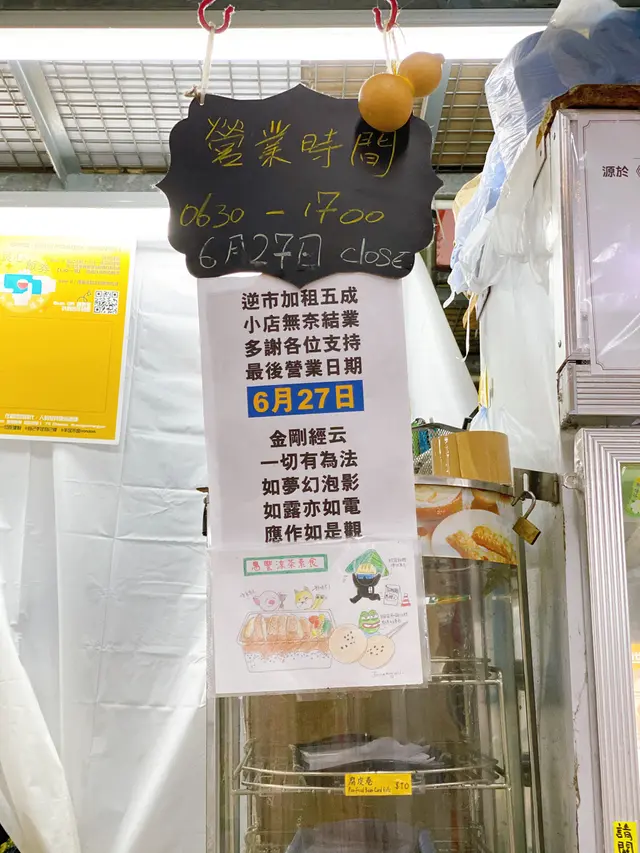 營業時間
0630 - 1700
6月27日 close
逆市加租五成
小店無奈結業
多謝各位支持
最後營業日期
6月27日
金剛經云
一切有為法
如夢幻泡影
如露亦如電
應作如是觀
涼茶素食
源於
腐皮卷
$10
請關